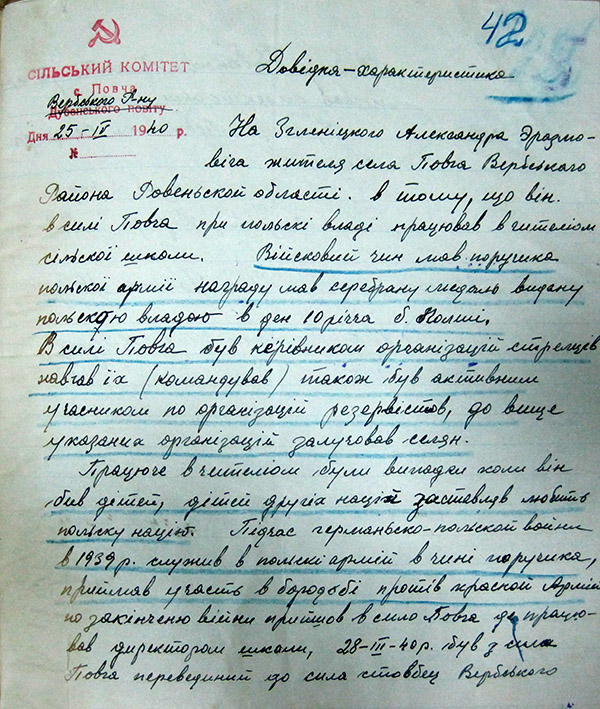 42
Довідка-характеристика
СІЛЬСЬКИЙ КОМІТЕТ
с. Повча
Вербського Р-ну
Дубенського повіту
Дня 25-IV 1940 р.
№
На Згленіцкого Александра Эразмо-
віга жителя села Повга Вербського
Района Ровеньской области. в тому, що він.
в силі Повга при польскі владі працював вчителіом
сільскої школи. Військовий чин мав поручика
польскої армії награду мав серебрану медаль видану
польскою владою в ден 10 річча б. Полші.
В силі Повга був керівником організацій стрелців
навчав їх (командував) також був активним
учасником по організацій резервістов, до вище
указаних організацій залучовав селян.
Працюче вчителіом були випадки коли він
бив детей, дітей другіх націй заставляв любить
польску націю. Підчас германьско-польской войни
в 1939 р. служив в польскі армій в чині поручика,
приймав участь в бородьбі протів красной Армій
по закінченю війни прийшов в сило Повга де працю-
вав директором школи, 28-III-40 р. був з сила
Повга перевединий до сила стовбец Вербського